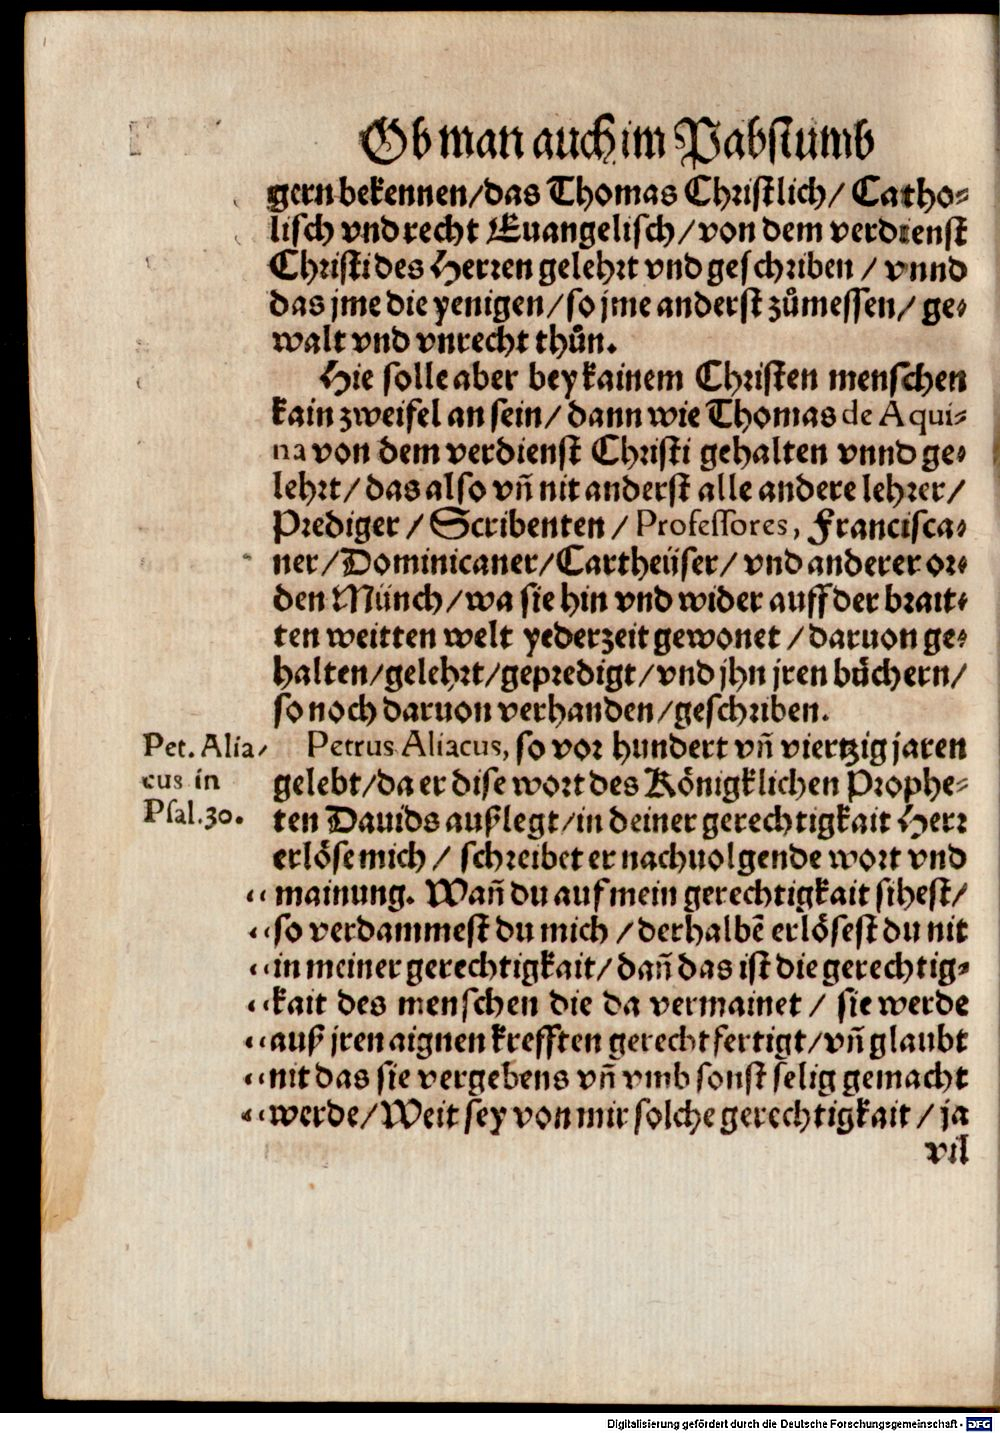 Ob man auch im Pabstumb
gern bekennen/das Thomas Christlich/ Catho-
lisch vnd recht Euangelisch/von dem verdienst
Christi des Herren gelehrt vnd geschriben / vnnd
das jme die yenigen/so jme anderst zůmessen/ ge-
walt vnd vnrecht thůn.
Hie solle aber bey kainem Christen menschen
kain zweifel an sein/ dann wie Thomas de Aqui-
na von dem verdienst Christi gehalten vnnd ge-
lehrt/ das also vñ nit anderst alle andere lehrer/
Prediger / Scribenten / Professores, Francisca-
ner/Dominicaner/Cartheüser/ vnd anderer or-
den Münch/wa sie hin vnd wider auff der brait-
ten weitten welt yederzeit gewonet /daruon ge-
halten/gelehrt/gepredigt/vnd jhn jren bůchern/
so noch daruon verhanden/geschriben.
Pet. Alia-
cus in
Psal.30.
Petrus Aliacus, so vor hundert vñ viertzig jaren
gelebt/da er dise wort des Königklichen Prophe-
ten Dauids außlegt/in deiner gerechtigkait Herr
erlöse mich / schreibet er nachuolgende wort vnd
“mainung. Wañ du auf mein gerechtigkait sihest/
“so verdammest du mich /derhalbẽ erlösest du nit
“in meiner gerechtigkait/ dañ das ist die gerechtig-
“kait des menschen die da vermainet / sie werde
“auß jren aignen krefften gerechtfertigt/vñ glaubt
“nit das sie vergebens vñ vmb sonst selig gemacht
“werde/Weit sey von mir solche gerechtigkait / ja
vil
Digitalisierung gefördert durch die Deutsche Forschungsgemeinschaft - DFG